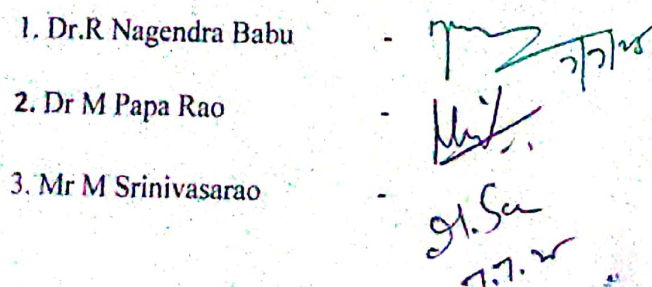 1. Dr.R Nagendra Babu -
7/7/25
2. Dr M Papa Rao -
3. Mr M Srinivasarao -
7.7.25